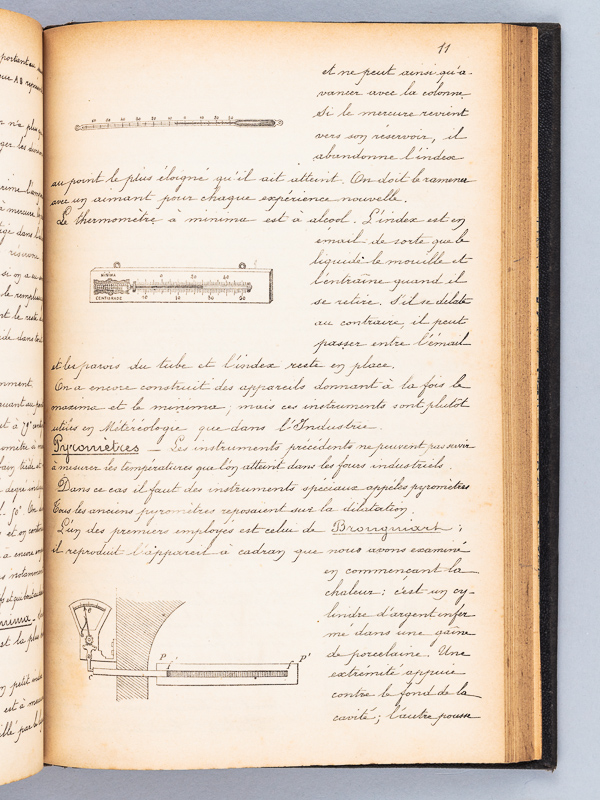 11
et ne peut ainsi qu'a-
vancer avec la colonne
Si le mercure revient
vers son réservoir, il
abandonne l'index
au point le plus éloigné qu'il ait atteint. On doit le ramener
avec un aimant pour chaque expérience nouvelle.
Le thermomètre à minima est à alcool. L'index est en
émail de sorte que le
liquide le mouille et
l'entraîne quand il
se retire. S'il se dilate
au contraire, il peut
passer entre l'émail
MINIMA
CENTIGRADE
et les parois du tube et l'index reste en place.
On a encore construit des appareils donnant à la fois le
maxima et le minima; mais ces instruments sont plutôt
utiles en Météréologie que dans l'Industrie.
Pyromètres — Les instruments précédents ne peuvent pas servir
à mesurer les températures que l'on atteint dans les fours industriels.
Dans ce cas il faut des instruments spéciaux appelés pyromètres
Tous les anciens pyromètres reposaient sur la dilatation.
L'un des premiers employés est celui de Brongniart;
il reproduit l'appareil à cadran que nous avons examiné
en commençant la
chaleur: c'est un cy-
lindre d'argent enfer
mé dans une gaîne
de porcelaine. Une
extrémité appuie
contre le fond de la
cavité; l'autre pousse
P
P'
C